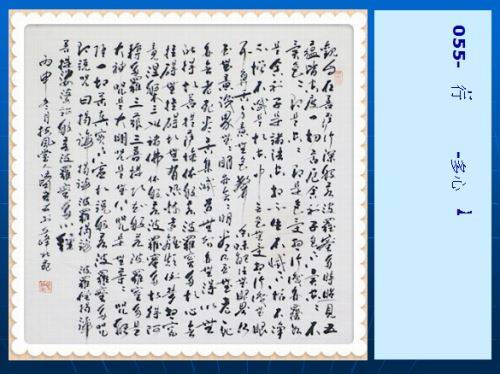 055- 行 -多心 】
觀自在菩薩行深般若波羅蜜多時照見五
蘊皆空度一切苦厄舍利子色不異空空不
異色色即是空空即是色受想行識亦復如
是舍利子是諸法空相不生不滅不垢不淨
不增不減是故空中無色無受想行識無眼
耳鼻舌身意無色聲香味觸法無眼界乃
至無意識界無無明亦無無明盡乃至無老死
亦無老死盡無苦集滅道無智亦無得以無
所得故菩提薩埵依般若波羅蜜多故心無
罣礙無罣礙故無有恐怖遠離顛倒夢想究
竟涅槃三世諸佛依般若波羅蜜多故得阿
耨多羅三藐三菩提故知般若波羅蜜多是
大神咒是大明咒是無上咒是無等等咒能
除一切苦真實不虛故說般若波羅蜜多咒
即說咒曰揭諦揭諦波羅揭諦波羅僧揭諦
菩提薩婆訶般若波羅蜜多心經
丙申冬月扶風堂